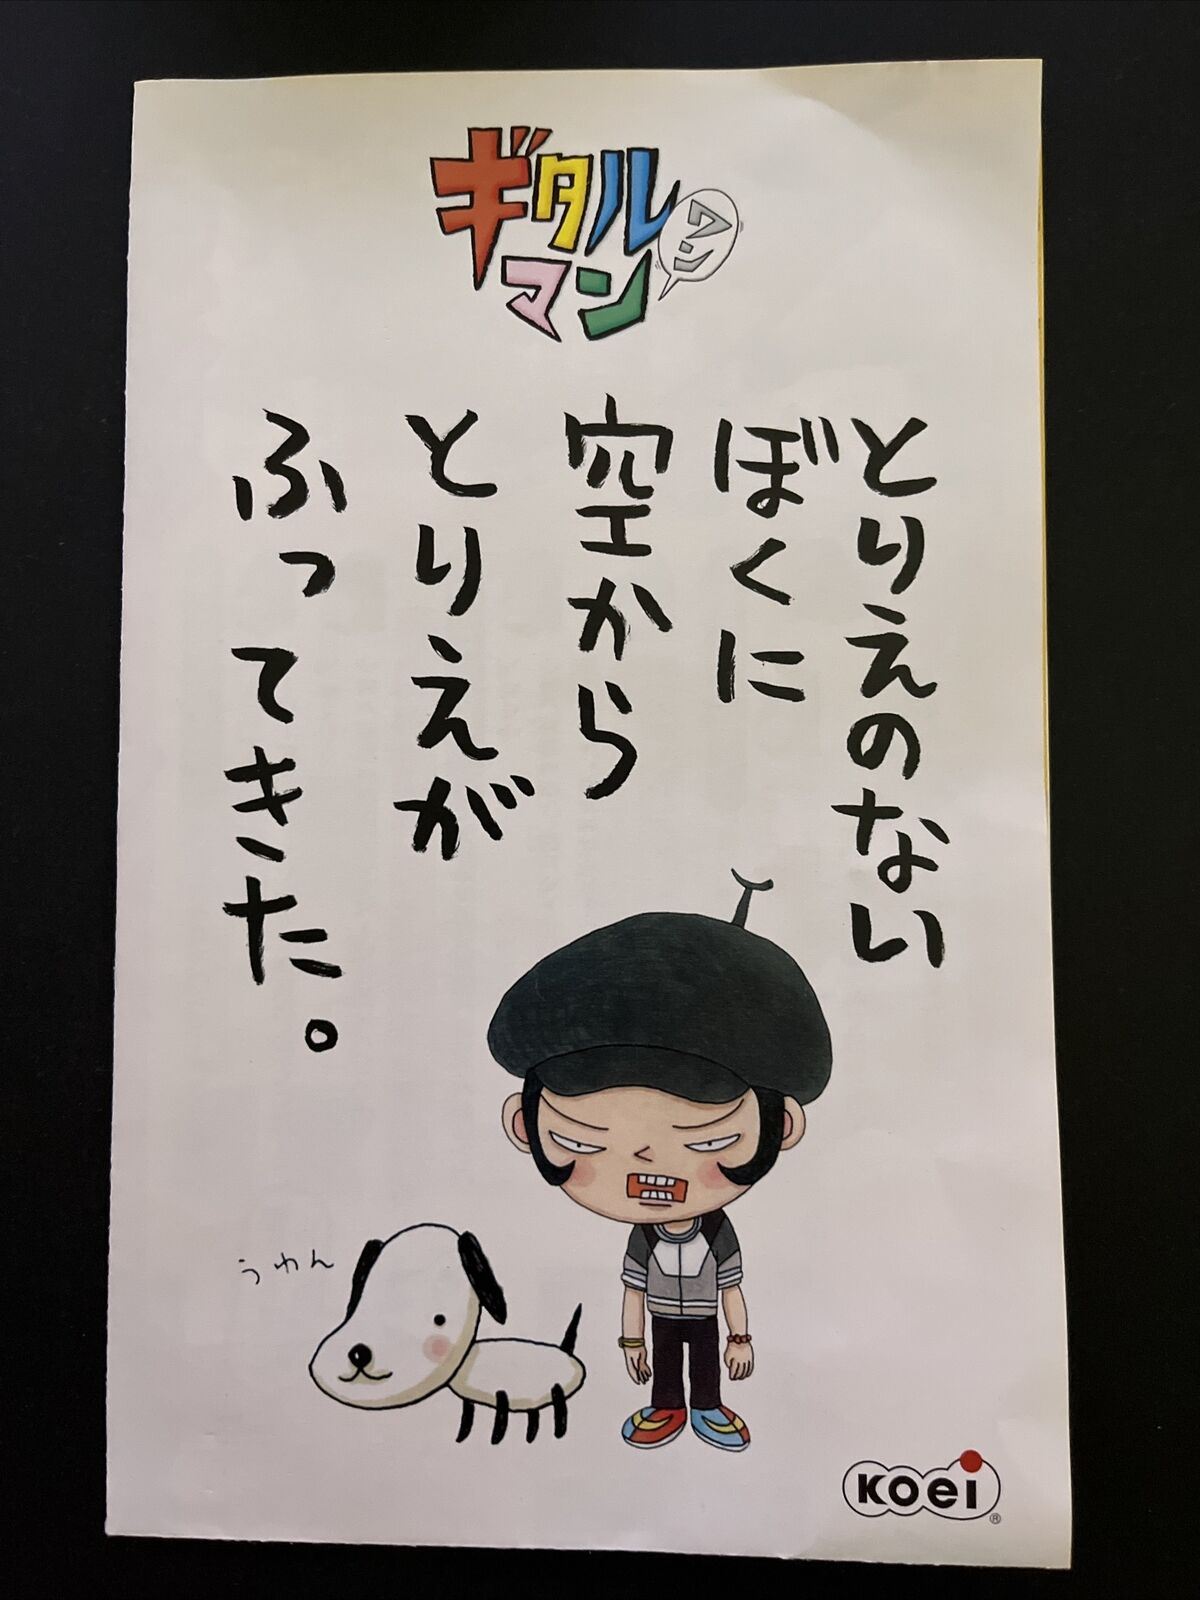 ギタルマン
ワン
とりえのない
ぼくに
空から
とりえが
ふってきた。
うわん
KOEI
®